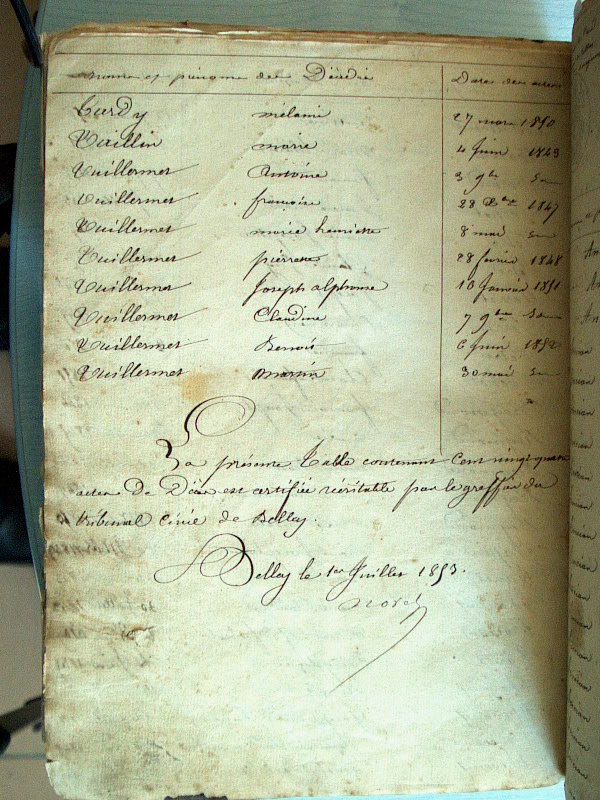 noms et prénoms des Décédés Date des actes
Tardy mélanie 27 mars 1850
Vuillin marie 4 Juin 1843
Vuillermet Antoine 3 9bre
Vuillermet françoise 28 Xbre 1847
Vuillermet marie henriette 8 mai
Vuillermet pierrette 28 février 1848
Vuillermet Joseph alphonse 10 Janvier 1851
Vuillermet Claudine 7 9bre
Vuillermet Benoit 6 Juin 1852
Vuillermet martin 30 mai
La présente Table contenant Cent vingt quatre
actes De Décès est certifiée véritable par le greffier du
tribunal civil de Belley.
Belley le 1er Juillet 1853.